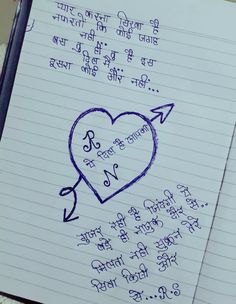 प्यार करना सिखा है
नफरतो कि कोई जगह
नही...
बस तु ही तु है इस
दिल में...
दूसरा कोई और नही...
R
ये दिल है आपका
N
गुजर रही है जिंदगी
बड़े ही नाजुक दौर से...
मिलता नहीं सुकून तेरे
सिवा किसी और
से... R.S